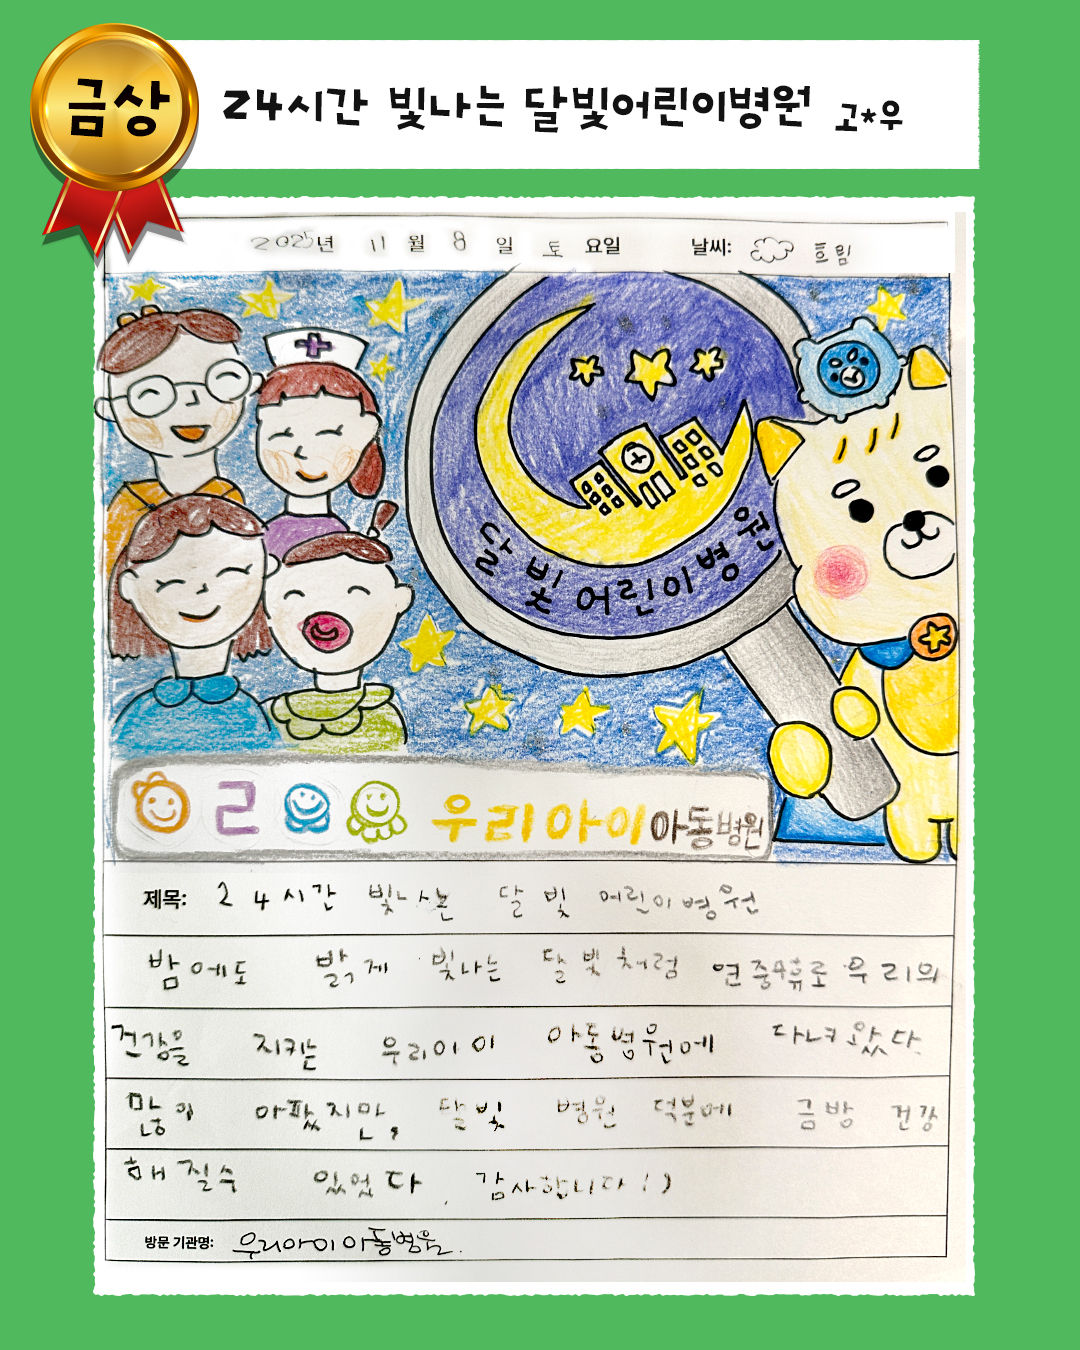 금상
24시간 빛나는 달빛어린이병원 고*우
2025년 11월 8일 토요일 날씨: 흐림
달빛어린이병원
우리아이아동병원
제목: 24시간 빛나는 달빛 어린이병원
밤에도 밝게 빛나는 달빛처럼 연중무휴로 우리의
건강을 지키는 우리아이 아동병원에 다녀왔다.
많이 아팠지만, 달빛 병원 덕분에 금방 건강
해질수 있었다. 감사합니다!)
방문 기관명: 우리아이아동병원.